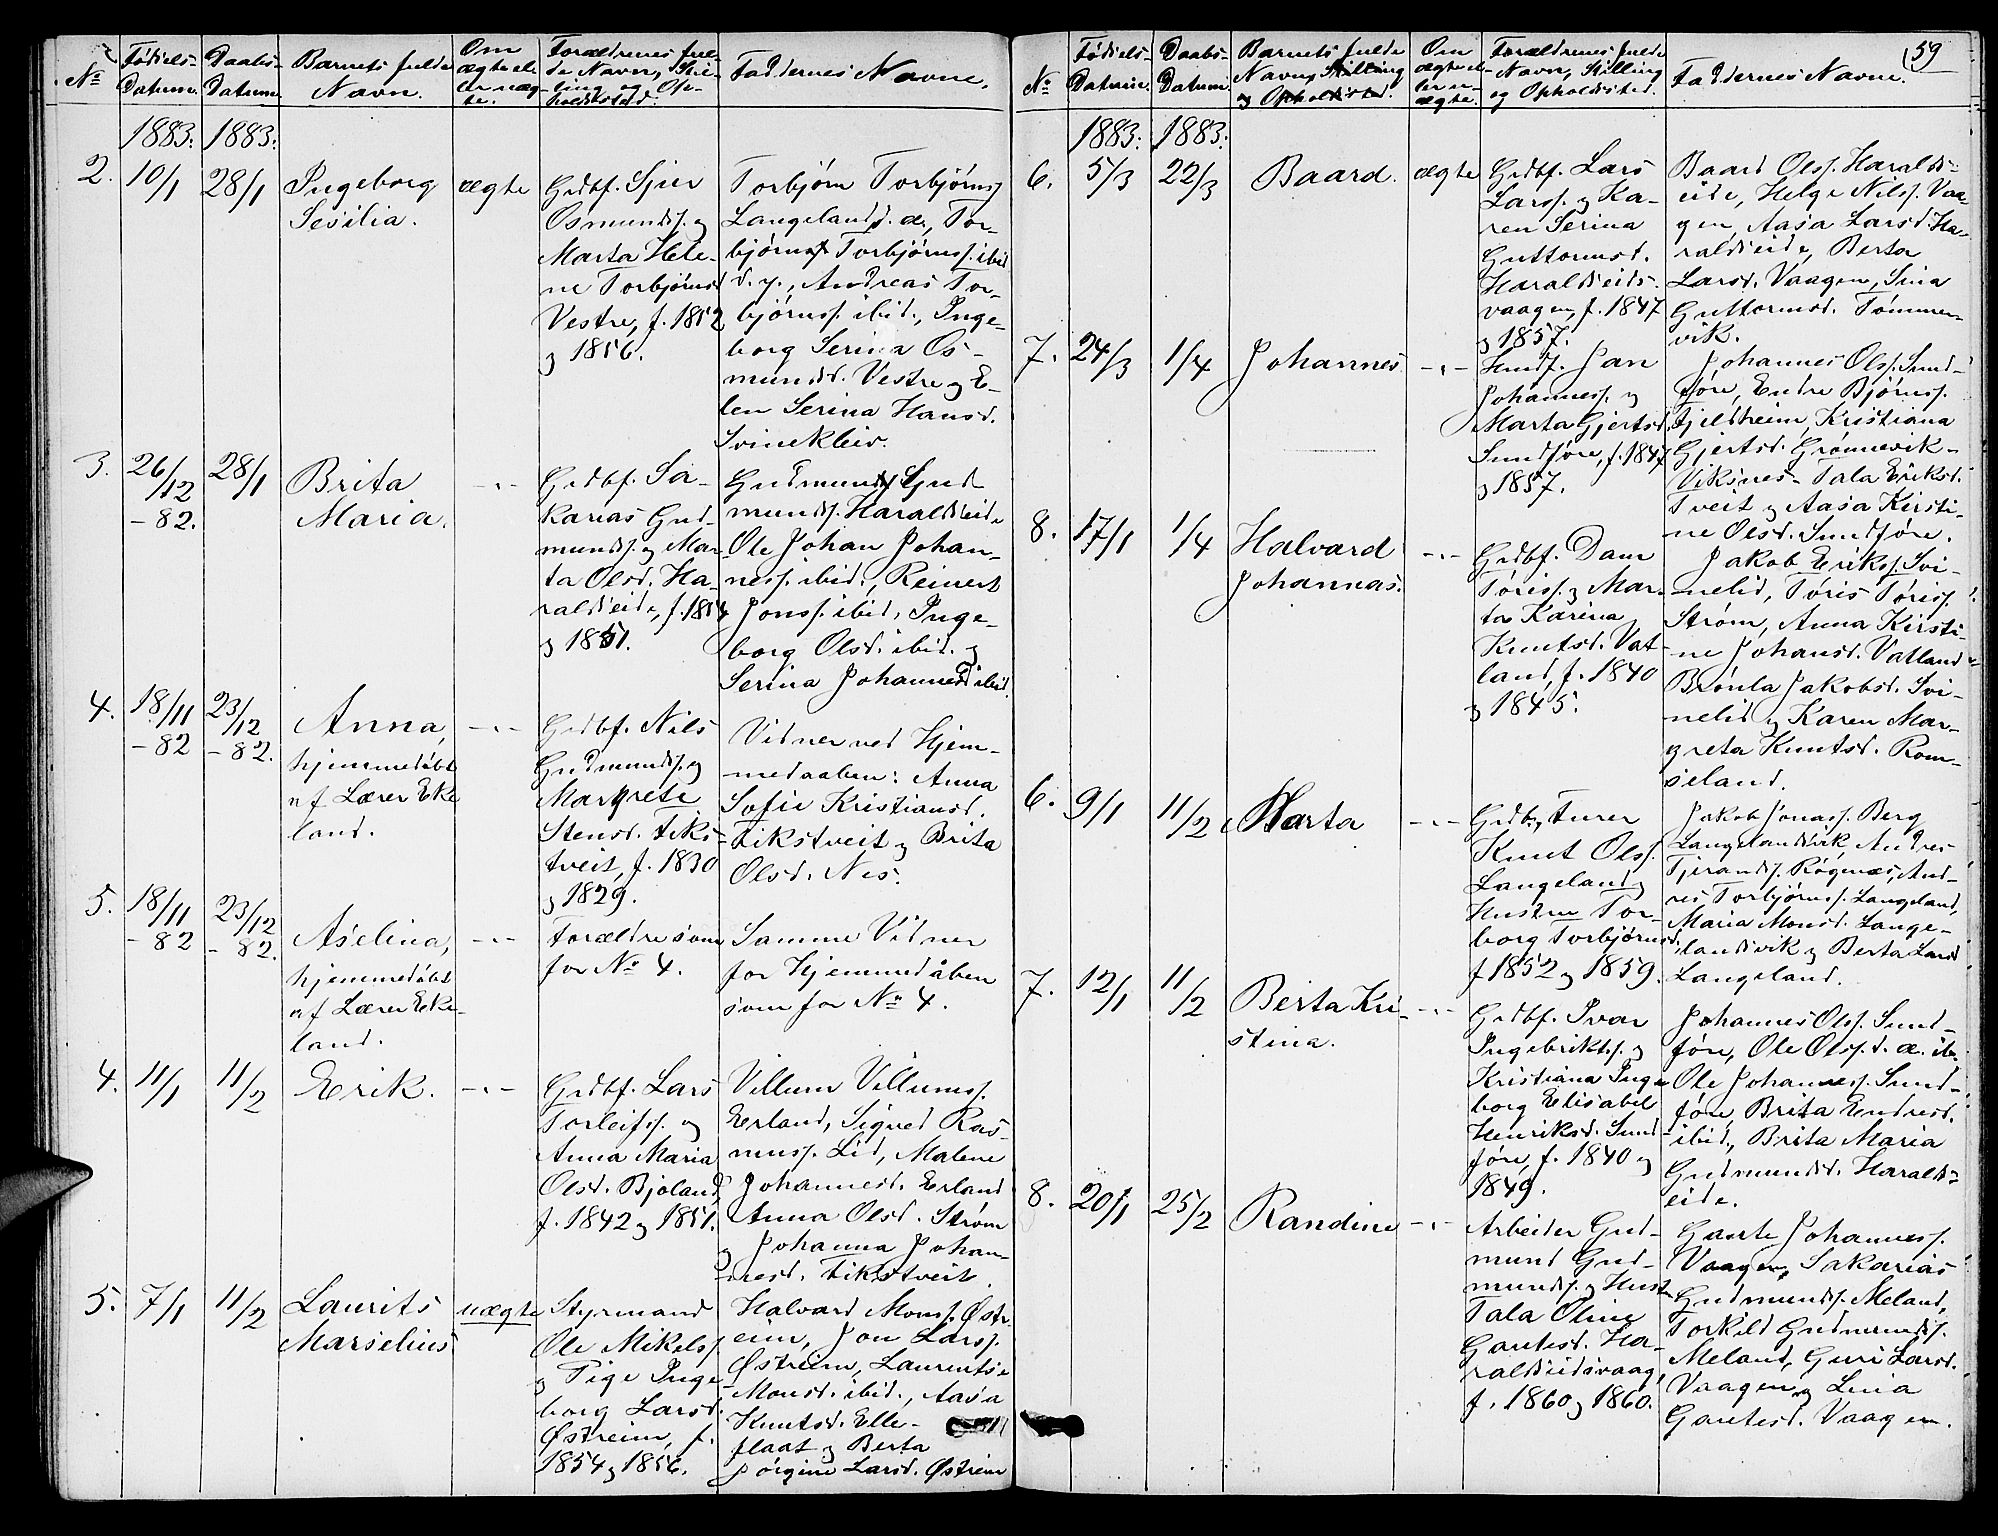 No
Fødsels-
Datum.
Daabs-
Datum.
Barnets fulde
Navn.
Om
ægte el-
ler uæg-
te.
Forældrenes ful-
de Navn, Stil-
ling og Op-
holdssted.
Faddernes Navne.
1883. 1883.
2.
10/1
28/1
Ingeborg
Sesilia.
ægte
Grdbf. Sjur
Osmunds. og
Marta Hele-
ne Torbjørnsd
Vestre, f. 1852
og 1856.
Torbjørn Torbjørns.
Langeland d. æ., Tor-
bjørn Torbjørns. ibid
d. y., Andreas Tor-
bjørns. ibid., Inge-
borg Serina Os-
mundsd. Vestre og E-
len Serina Hansd.
Svinekleiv.
3.
26/12
- 82.
28/1
Brita
Maria.
-"-
Grdbf. Sa-
karias Gud-
munds. og Mar-
ta Olsd. Ha-
raldseide, f. 1854
og 1851.
Gudmund Gud
munds. Haraldseide
Ole Johan Johan-
ness. ibid., Reinert
Jons. ibid., Inge-
borg Olsd. ibid. og
Serina Johannesd ibid.
4.
18/11
- 82
23/12
- 82.
Anna,
hjemmedøbt
af Lærer Eke
land.
-"-
Grdbf. Nils
Gudmunds. og
Margrete
Stensd. Fiks-
tveit, f. 1830
og 1829.
Vidner ved Hjem-
medaaben: Anna
Sofie Kristiansd.
Fikstveit og Brita
Olsd. Nes.
5.
18/11
- 82
23/12
- 82.
Aselina,
hjemmedøbt
af Lærer Eke-
land.
-"-
Forældre som
for No 4.
Samme Vidner
for Hjemmedåben
som for No 4.
4.
11/1
11/2
Erik.
-"-
Grdbf. Lars
Torleifs. og
Anna Maria
Olsd. Bjoland
f. 1842 og 1851.
Villum Villums.
Erland, Sigved Ras-
mus. Lid, Malene
Johannesd. Erland
Anna Olsd. Strøm
og Johanna Johan-
nesd. Fikstveit.
5.
7/1
11/2
Laurits
Marselius
uægte
Styrmand
Ole Mikels.
og Pige Inge
borg Larsd.
Østreim, f.
1854 og 1856.
Halvard Mons. Østr
eim, Jon Lars.
Østreim, Laurentse
Monsd. ibid., Aasa
Knutsd. Elle-
flaat og Berta
Jørgine Larsd. Østreim
59
No
Fødsels-
Datum.
Daabs-
Datum.
Barnets fulde
Navn, Stilling
og Opholdssted.
Om
ægte el-
ler u-
ægte.
Forældrenes fulde
Navn, Stilling
og Opholdssted.
Faddernes Navne.
1883. 1883.
6.
5/3
22/3
Baard.
ægte
Grdbf. Lars
Larss. og Ka-
ren Serina
Guttormsd.
Haraldseids-
vaagen, f. 1847
og 1857.
Baard Ols. Haralds-
eide, Helge Nils. Vaa-
gen, Aasa Larsd. Ha-
raldseide, Berta
Larsd. Vaagen, Sina
Guttormsd. Tømmer-
vik.
7.
24/3
1/4
Johannes
-"-
Husf. Jan
Johanness. og
Marta Gjertsd.
Sundføre, f. 1847
og 1857.
Johannes Ols. Sund-
føre, Endre Bjørns.
Fjeldheim, Kristiana
Gjertsd. Grønnevik-
Viksnes- Tala Eriksd.
Tveit og Aasa Kirsti-
ne Olsd. Sundføre.
8.
17/1
1/4
Halvard
Johannas.
-"-
Grdbf. Dam
Tøris. og Mar-
ta Karina
Knutsd. Vat-
land, f. 1840
og 1845.
Jakob Eriks. Svi-
nelid, Tøris Tøris.
Strøm, Anna Kirsti-
ne Johansd. Vatland
Brønla Jakobsd. Svi-
nelid og Karen Mar-
greta Knutsd. Rom-
seland.
6.
9/1
11/2
Marta
-"-
Knut Ols.
Langeland og
Hustru Tor-
borg Torbjørnsd.
f 1852 og 1859.
Jakob Jonas. Berg
Langelandsvik, Andres
Tjerands. Røgenæs, And-
res Torbjørns. Langeland,
Maria Monsd. Lange-
landsvik og Berta Larsd
Langeland.
7.
12/1
11/2
Berta Kri-
stina.
-"-
Grdbf. Ivar
Ingebrikts. og
Kristiana Inge
borg Elisabet
Henriksd. Sund
føre, f. 1840 og
1849.
Johannes Ols. Sund-
føre, Ole Ols. d. æ. ib.
Ole Johanness. Sund-
føre, Brita Endresd.
ibid., Brita Maria
Gudmundsd. Haralds-
eide.
8.
20/1
25/2
Randine
-"-
Arbeider Gud-
mund Gud-
munds. og Hust
Tala Oline
Gautesd. Ha-
raldseidsvaag,
f. 1860 og 1860.
Gaute Johanness.
Vaagen, Sakarias
Gudmunds. Meland,
Torkild Gudmunds.
Meland, Guri Larsd.
Vaagen og Lina
Gautesd. Vaagen.